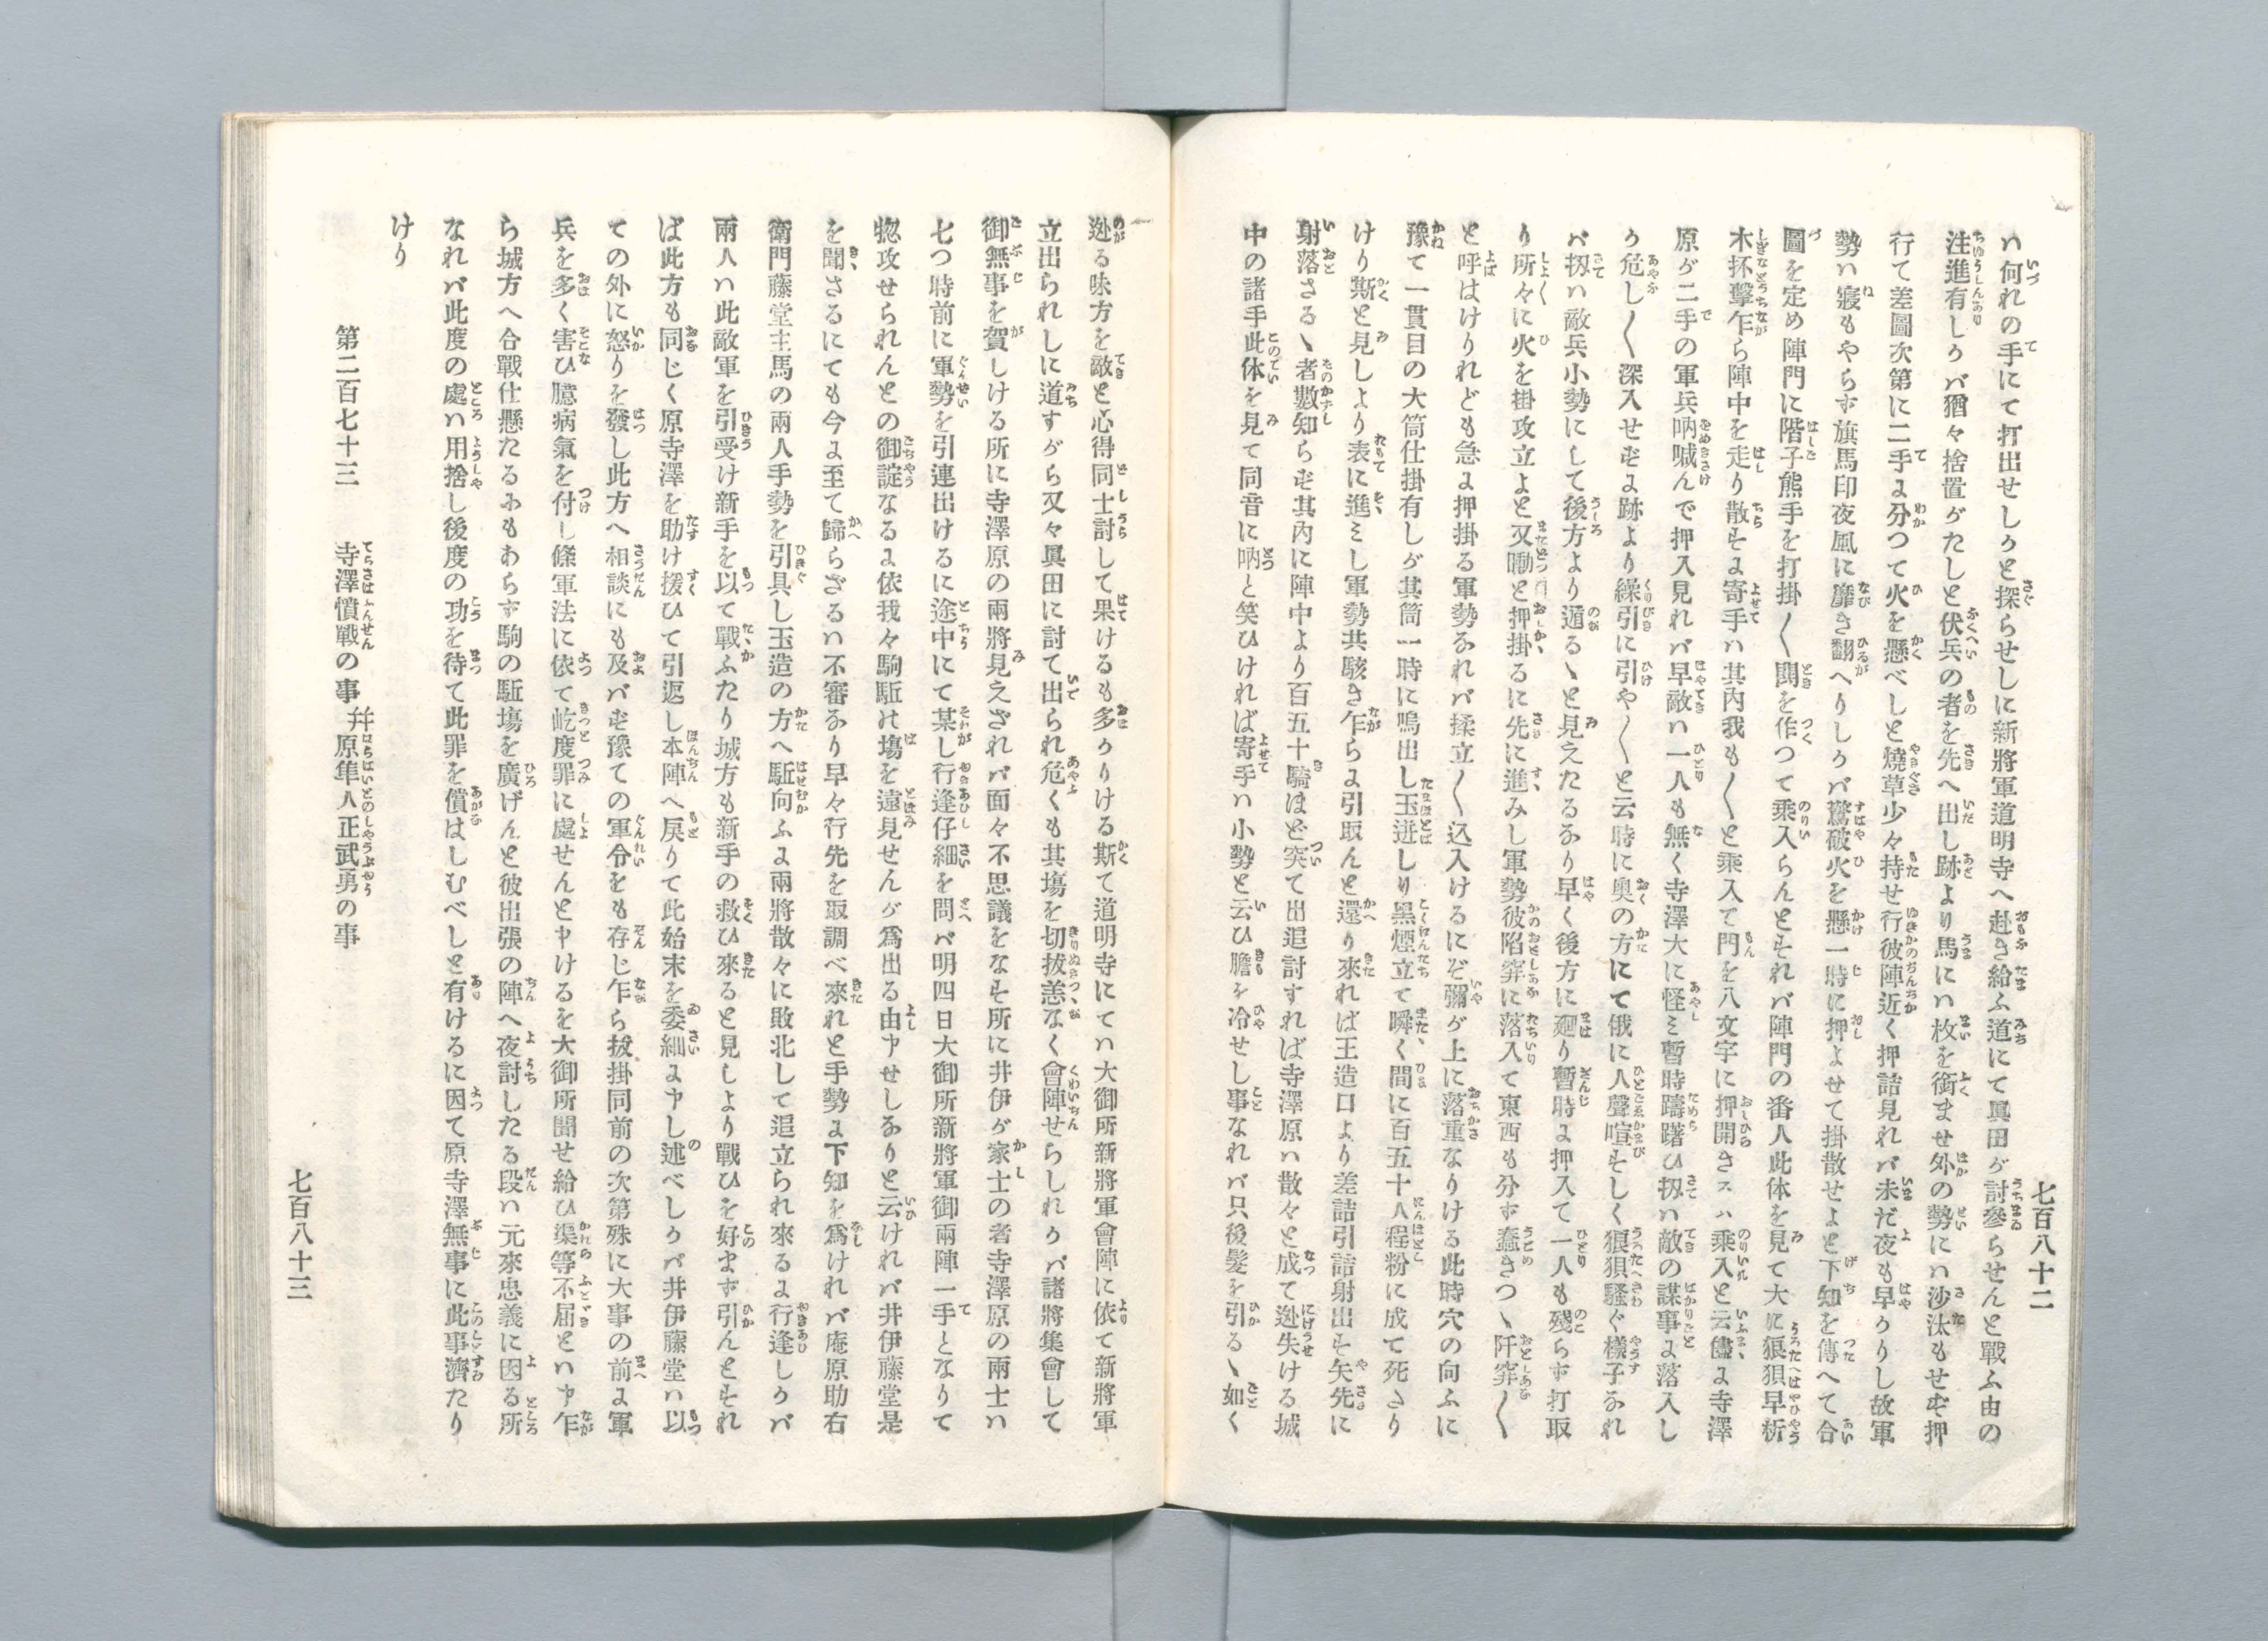 七百八十二
ハ何れの手にて打出せしかと探らせしに新將軍道明寺へ赴き給ふ道にて眞田が討參らせんと戰ふ由の
注進有しかバ猶々捨置がたしと伏兵の者を先へ出し跡より馬にハ枚を銜ませ外の勢にハ沙汰もせず押
行て差圖次第に二手に分つて火を懸べしと燒草少々持せ行彼陣近く押詰見れバ未だ夜も早かりし故軍
勢ハ寢もやらず旗馬印夜風に靡き翻へりしかバ驚破火を懸一時に押よせて掛散せよと下知を傳へて合
圖を定め陣門に階子熊手を打掛〱鬨を作つて乘入らんとすれバ陣門の番人此体を見て大に狼狽早析
木抔撃乍ら陣中を走り散すに寄手ハ其內我も〱と乘入て門を八文字に押開きスハ乘入と云儘に寺澤
原が二手の軍兵吶喊んで押入見れバ早敵ハ一人も無く寺澤大に怪ミ暫時躊躇ひ扨ハ敵の謀事に落入し
か危し〱深入せずに跡より繰引に引や〱と云時に奥の方にて俄に人聲喧すしく狼狽騷ぐ樣子なれ
バ扨ハ敵兵小勢にして後方より遁るヽと見えたるなり早く後方に廻り暫時に押入て一人も殘らず打取
り所々に火を掛攻立よと又噇と押掛るに先に進みし軍勢彼陷穽に落入て東西も分ず蠢きつヽ阱穽〱
と呼はけりれども急に押掛る軍勢なれバ揉立〱込入けるにぞ彌が上に落重なりける此時穴の向ふに
豫て一貫目の大筒仕掛有しが其筒一時に鳴出し玉迸しり黑煙立て瞬く間に百五十人程粉に成て死さり
けり斯と見しより表に進ミし軍勢共駭き乍らに引取んと還り來れば玉造口より差詰引詰射出す矢先に
射落さるヽ者數知らず其內に陣中より百五十騎ほど突て出追討すれば寺澤原ハ散々と成て迯失ける城
中の諸手此体を見て同音に吶と笑ひければ寄手ハ小勢と云ひ膽を冷せし事なれバ只後髮を引るヽ如く
迯る味方を敵と心得同士討して果けるも多かりける斯て道明寺にてハ大御所新將軍會陣に依て新將軍
立出られしに道すがら又々眞田に討て出られ危くも其塲を切拔恙なく會陣せらしれかバ諸將集會して
御無事を賀しける所に寺澤原の兩將見えざれバ面々不思議をなす所に井伊が家士の者寺澤原の兩士ハ
七つ時前に軍勢を引連出けるに途中にて某し行逢仔細を問バ明四日大御所新將軍御兩陣一手となりて
惣攻せられんとの御諚なるに依我々駒駈の塲を遠見せんが爲出る由申せしなりと云けれバ井伊藤堂是
を聞さるにても今に至て歸らざるハ不審なり早々行先を取調べ來れと手勢に下知を爲けれバ庵原助右
衛門藤堂主馬の兩人手勢を引具し玉造の方へ駈向ふに兩將散々に敗北して追立られ來るに行逢しかバ
兩人ハ此敵軍を引受け新手を以て戰ふたり城方も新手の救ひ來ると見しより戰ひを好まず引んとすれ
ば此方も同じく原寺澤を助け援ひて引返し本陣へ戾りて此始末を委細に申し述べしかバ井伊藤堂ハ以
ての外に怒りを發し此方へ相談にも及バず豫ての軍令をも存じ乍ら拔掛同前の次第殊に大事の前に軍
兵を多く害ひ臆病氣を付し條軍法に依て屹度罪に處せんと申けるを大御所聞せ給ひ渠等不屆とハ申乍
ら城方へ合戰仕懸たるふもあらず駒の駈塲を廣げんと彼出張の陣へ夜討したる段ハ元來忠義に因る所
なれバ此度の處ハ用捨し後度の功を待て此罪を償はしむべしと有けるに因て原寺澤無事に此事濟たり
けり
第二百七十三　寺澤憤戰の事幷原隼人正武勇の事
七百八十三